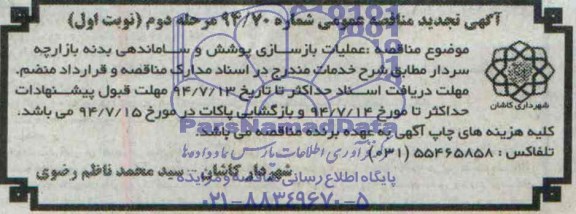 آگهی تجدید مناقصه عمومی شماره ۹۴/۷۰ مرحله دوم (نوبت اول)
موضوع مناقصه :عملیات بازسازی پوشش و ساماندهی بدنه بازارچه
سردار مطابق شرح خدمات مندرج در اسناد مدارک مناقصه و قرارداد منضم.
مهلت دریافت اسناد حداکثر تا تاریخ ۹۴/۷/۱۳ مهلت قبول پیشنهادات
حداکثر تا مورخ ۹۴/۷/۱۴ و بازگشایی پاکات در مورخ ۹۴/۷/۱۵ می باشد.
کلیه هزینه های چاپ آگهی به عهده برنده مناقصه می باشد.
تلفاکس : ۵۵۴۶۵۸۵۸ (۰۳۱)
شهردار کاشان - سید محمد ناظم رضوی
شهرداری کاشان
ParsNamadData
فرآوری اطلاعات پارس نماد داده ها
پایگاه اطلاع رسانی مناقصه و مزایده
۰۲۱-۸۸۳۴۹۶۷۰-۵